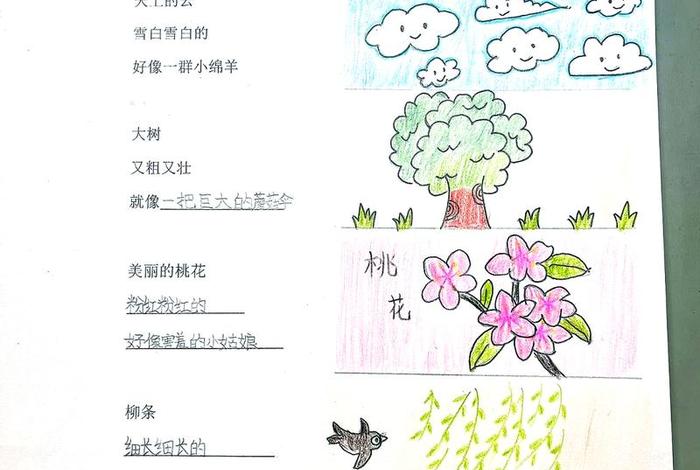 天上的云
雪白雪白的
好像一群小绵羊
大树
又粗又壮
就像一把巨大的蘑菇伞
美丽的桃花
粉红粉红的
好像害羞的小姑娘
桃
花
柳条
细长细长的